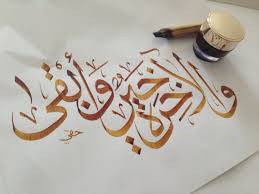 والآخرة خير وأبقى